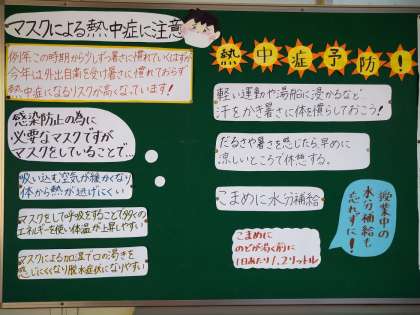 マスクによる熱中症に注意
例年この時期から少しずつ暑さに慣れていくはずが
今年は外出自粛を受け暑さに慣れておらず
熱中症になるリスクが高くなっています！
感染防止の為に
必要なマスクですが
マスクをしていることで…
吸い込む空気が暖かくなり
体から熱が逃げにくい
マスクをして呼吸をすることで多くの
エネルギーを使い体温が上昇しやすい
マスクによる加湿で口の渇きを
感じにくくなり脱水症状になりやすい
熱中症予防！
軽い運動や湯船に浸かるなど
汗をかき暑さに体を慣らしておこう！
だるさや暑さを感じたら早めに
涼しいところで休憩する。
こまめに水分補給
こまめに
のどが渇く前に
1日あたり1.2リットル
授業中の
水分補給も
忘れずに！